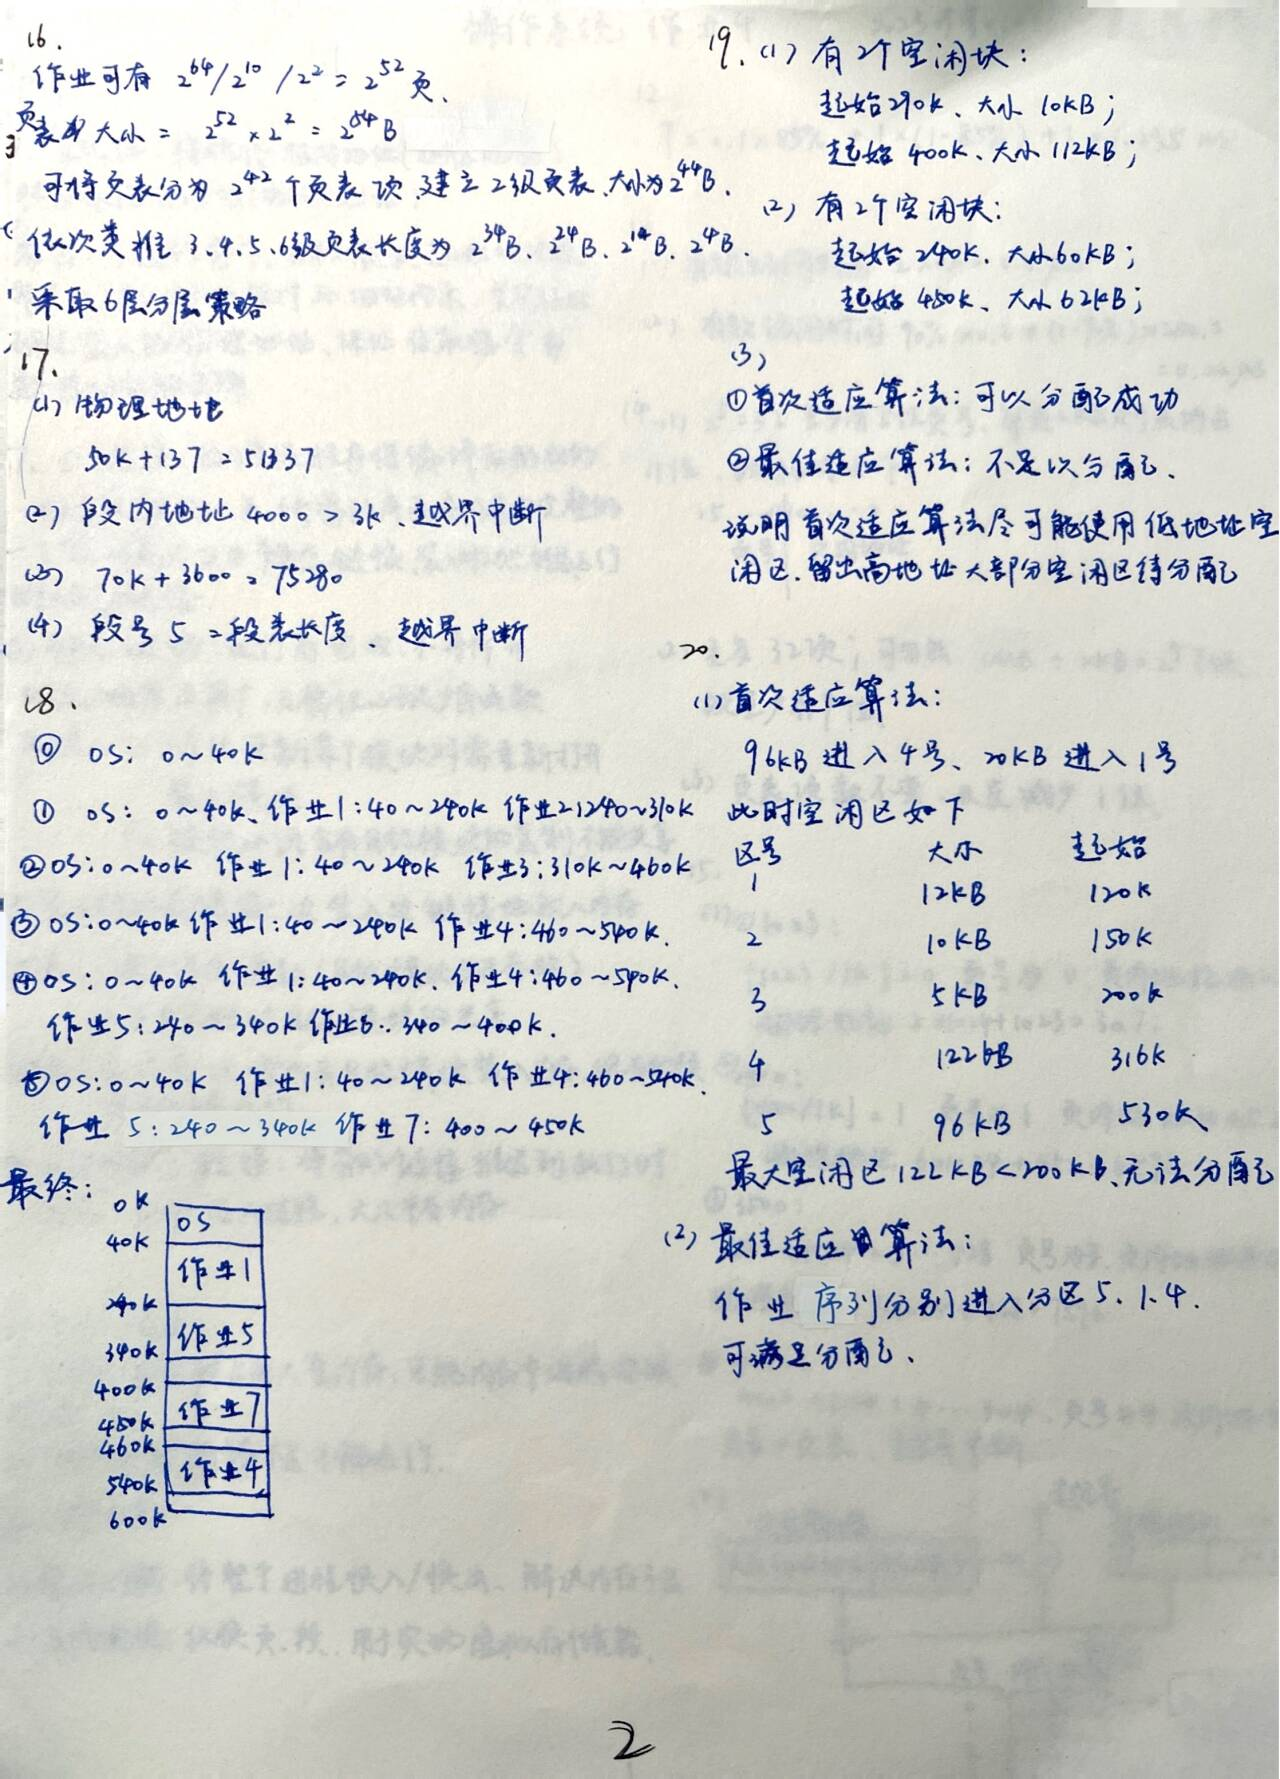 16.
作业可有 2^64/2^10/2^2 = 2^52 页、
页表 大小 = 2^52 × 2^2 = 2^54 B
可将页表分为 2^42 个页表项、建立2级页表、大小为2^44B.
依次类推 3.4.5.6级页表长度为 2^34B、2^24B、2^14B、2^4B.
采取6层分层策略
17.
(1) 物理地址
50K+137=51337
(2) 段内地址 4000 > 3K、越界中断
(3) 70K+3600=75280
(4) 段号 5 = 段表长度、越界中断
18.
⓪ OS: 0~40K
① OS: 0~40K、作业1:40~240K 作业2:240~310K
②OS:0~40K 作业1:40~240K 作业3:310K~460K
③ OS:0~40K 作业1:40~240K 作业4:460~540K.
④OS:0~40K 作业1:40~240K. 作业4:460~540K.
作业5:240~340K 作业6:340~400K.
⑤OS:0~40K 作业1:40~240K 作业4:460~540K.
作业 5:240~340K 作业7:400~450K
最终:
0K
OS
40K
作业1
240K
作业5
340K
400K
作业7
450K
460K
作业4
540K
600K
19.(1) 有2个空闲块:
起始290K、大小 10KB;
起始 400K、大小 112KB;
(2) 有2个空闲块:
起始 240K、大小60KB;
起始 450K、大小 62KB;
(3)
①首次适应算法:可以分配成功
②最佳适应算法:不足以分配、
说明首次适应算法尽可能使用低地址空
闲区.留出高地址大部分空闲区待分配
20.
(1)首次适应算法:
96KB 进入4号、20KB 进入1号
此时空闲区如下
区号 大小 起始
1 12KB 120K
2 10KB 150K
3 5KB 200K
4 122KB 316K
5 96KB 530K
最大空闲区122KB<200KB、无法分配
(2) 最佳适应算法:
作业 序列分别进入分区5、1、4.
可满足分配、
2